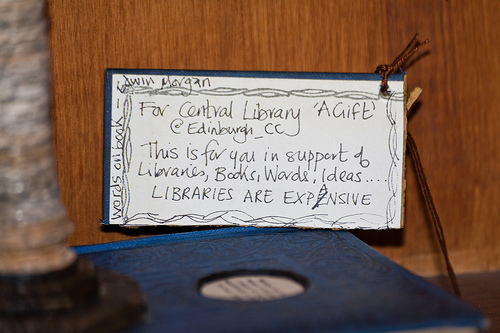 words on book - Edwin Morgan
For Central Library 'A Gift'
@Edinburgh_CC
This is for you in support of
Libraries, Books, Words, Ideas....
LIBRARIES ARE EXPANSIVE